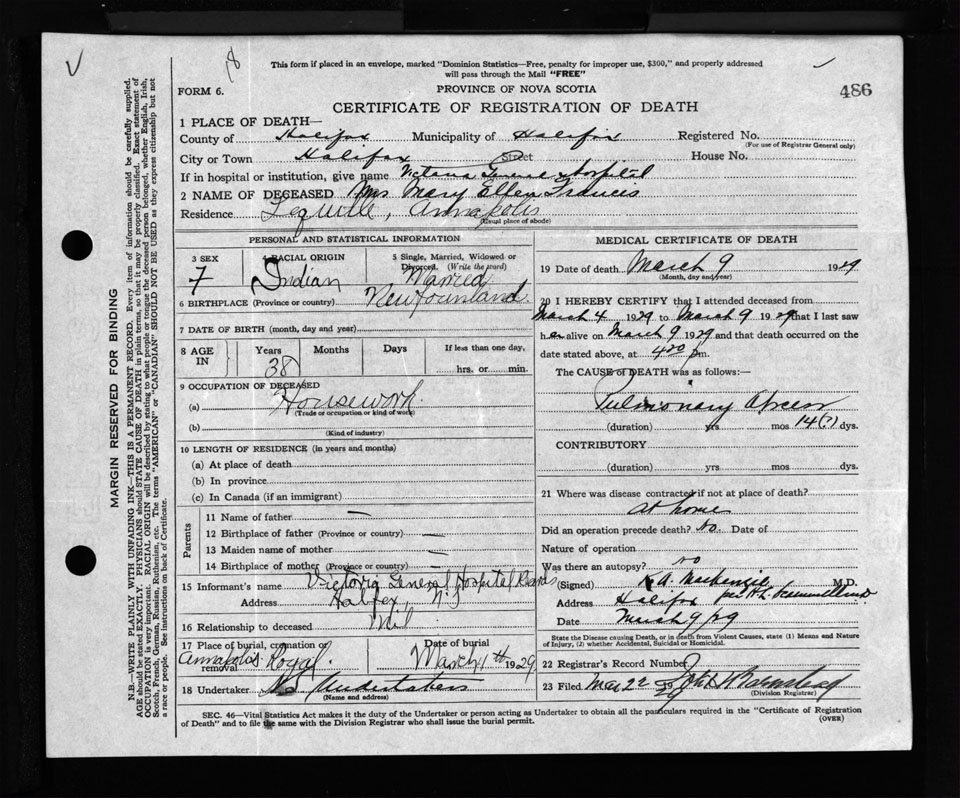 ✓ 18 This form if placed in an envelope, marked "Dominion Statistics—Free, penalty for improper use, $300," and properly addressed
will pass through the Mail "FREE"
FORM 6. PROVINCE OF NOVA SCOTIA 486
CERTIFICATE OF REGISTRATION OF DEATH
1 PLACE OF DEATH—
County of Halifax Municipality of Halifax Registered No.
(For use of Registrar General only)
City or Town Halifax Street House No.
If in hospital or institution, give name Victoria General Hospital
2 NAME OF DECEASED Mrs. Mary Ellen Francis
Residence Lequille, Annapolis
(Usual place of abode)
PERSONAL AND STATISTICAL INFORMATION
3 SEX F
4 RACIAL ORIGIN Indian
5 Single, Married, Widowed or Divorced. (Write the word) Married
6 BIRTHPLACE (Province or country) Newfounland.
7 DATE OF BIRTH (month, day and year)
8 AGE IN Years 38 Months Days If less than one day, hrs. or min.
9 OCCUPATION OF DECEASED
(a) Housework.
(Trade or occupation or kind of work)
(b)
(Kind of industry)
10 LENGTH OF RESIDENCE (in years and months)
(a) At place of death
(b) In province
(c) In Canada (if an immigrant)
Parents
11 Name of father —
12 Birthplace of father (Province or country) —
13 Maiden name of mother —
14 Birthplace of mother (Province or country) —
15 Informant's name Victoria General Hospital
Address Halifax N.S
16 Relationship to deceased Nil
17 Place of burial, cremation or removal Annapolis Royal.
Date of burial March 1929
18 Undertaker N.S. Undertakers
(Name and address)
MEDICAL CERTIFICATE OF DEATH
19 Date of death March 9 1929
(Month, day and year)
20 I HEREBY CERTIFY that I attended deceased from
March 4 1929 to March 9 1929 that I last saw
her alive on March 9 1929 and that death occurred on the
date stated above, at 420 pm.
The CAUSE of DEATH was as follows:—
Pulmonary Abscess
(duration) yrs mos 14(?) dys.
CONTRIBUTORY
(duration) yrs mos dys.
21 Where was disease contracted if not at place of death?
at home
Did an operation precede death? No. Date of
Nature of operation
Was there an autopsy? no
(Signed) K A. MacKenzie M.D.
Address Halifax
Date March 9/29
State the Disease causing Death, or in death from Violent Causes, state (1) Means and Nature of Injury, (2) whether Accidental, Suicidal or Homicidal.
22 Registrar's Record Number
23 Filed Mar 22
(Division Registrar)
SEC. 46—Vital Statistics Act makes it the duty of the Undertaker or person acting as Undertaker to obtain all the particulars required in the "Certificate of Registration
of Death" and to file the same with the Division Registrar who shall issue the burial permit. (OVER)
MARGIN RESERVED FOR BINDING
N.B.—WRITE PLAINLY WITH UNFADING INK—THIS IS A PERMANENT RECORD. Every item of information should be carefully supplied.
AGE should be stated EXACTLY. PHYSICIANS should STATE CAUSE OF DEATH in plain terms, so that it may be properly classified. Exact statement of
OCCUPATION is very important. RACIAL ORIGIN will be described by stating to what people or tongue the deceased person belonged, whether English, Irish,
Scotch, French, German, Russian, Ruthenian, etc. The terms "AMERICAN" or "CANADIAN" SHOULD NOT BE USED as they express citizenship but not
a race or people. See instructions on back of Certificate.